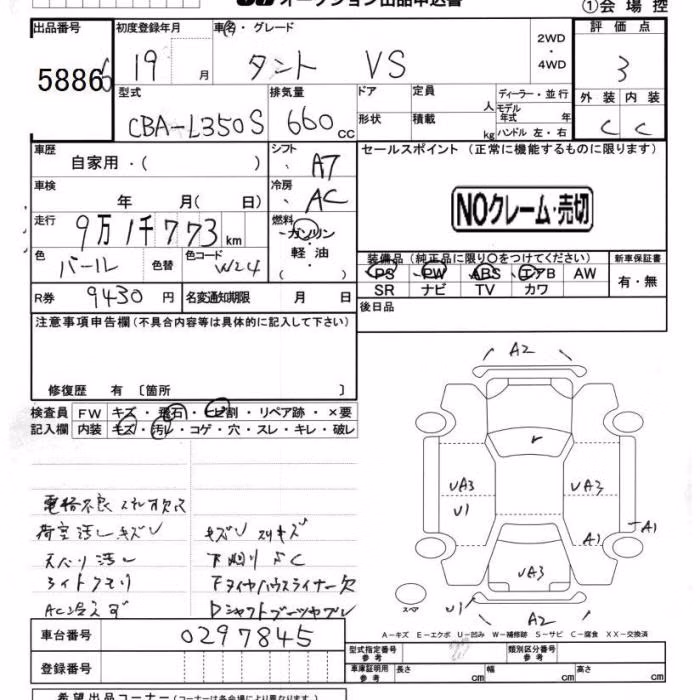 オークション出品申込書
①会場控
出品番号 初度登録年月 車名・グレード 2WD・4WD 評価点
5886 19 月 タント VS 3
型式 排気量 ドア 定員 人 ディーラー・並行 外装 内装
CBA-L350S 660 cc 形状 積載 kg モデル年式 年 ハンドル 左・右 C C
車歴 シフト セールスポイント(正常に機能するものに限ります)
自家用・( ) AT
車検 冷房
年 月( 日) AC
NOクレーム・売切
走行 燃料
9万1千773km ガソリン
軽油
( )
色 パール 色替 色コード W24
装備品(純正品に限り○をつけてください) 新車保証書
PS PW ABS エアB AW 有・無
SR ナビ TV カワ
R券 9430円 名変通知期限 月 日
後日品
注意事項申告欄(不具合内容等は具体的に記入して下さい)
修復歴 有〔箇所 〕
検査員 FW キズ・飛石・ヒビ割・リペア跡・×要
記入欄 内装 キズ・汚レ・コゲ・穴・スレ・キレ・破レ
荷室汚レキズU
天バリ汚レ
ライトクモリ
AC冷えず
キズU スリキズ
下廻りSC
Fタイヤハウスライナー欠
Dシャフトブーツヤブレ
A2
r
UA3 UA3
U1
A1 A1
UA3
スペア
U1
A2
A-キズ E-エクボ U-凹み W-補修跡 S-サビ C-腐食 XX-交換済
車台番号 0297845
型式指定番号 参考 類別区分番号 参考
登録番号
車庫証明用 参考 長さ cm 幅 cm 高さ cm
希望出品コーナー(コーナーは各会場により異なります)